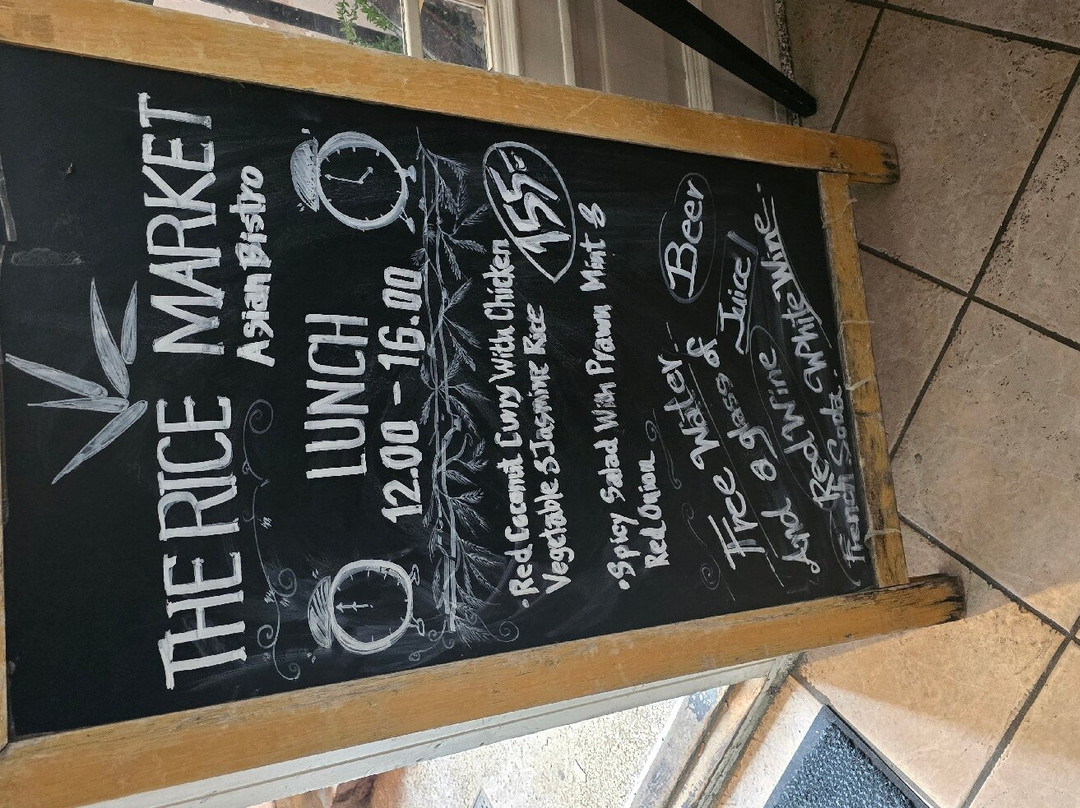 THE RICE MARKET
Asian Bistro
LUNCH
12.00 - 16.00
• Red Coconut Curry With Chicken
Vegetable & Jasmine Rice
155:-
• Spicy Salad With Prawn Mint &
Red Onion
Free Water
And a glass of Beer
Juice/
Red Wine White Wine
French Soda.